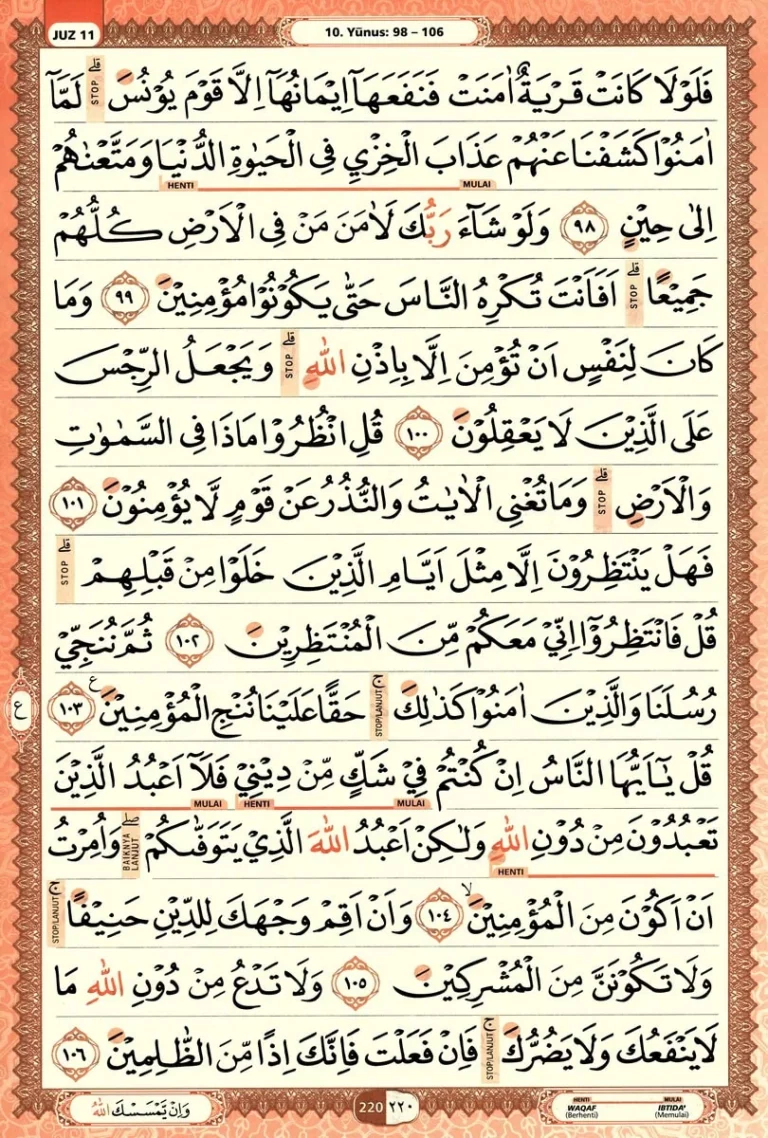 JUZ 11
10. Yūnus: 98 – 106
فَلَوْلَا كَانَتْ قَرْيَةٌ اٰمَنَتْ فَنَفَعَهَآ اِيْمَانُهَآ اِلَّا قَوْمَ يُوْنُسَۗ لَمَّآ
STOP
اٰمَنُوْا كَشَفْنَا عَنْهُمْ عَذَابَ الْخِزْيِ فِى الْحَيٰوةِ الدُّنْيَا وَمَتَّعْنٰهُمْ
MULAI HENTI
اِلٰى حِيْنٍ ٩٨ وَلَوْ شَاۤءَ رَبُّكَ لَاٰمَنَ مَنْ فِى الْاَرْضِ كُلُّهُمْ
جَمِيْعًاۗ اَفَاَنْتَ تُكْرِهُ النَّاسَ حَتّٰى يَكُوْنُوْا مُؤْمِنِيْنَ ٩٩ وَمَا
STOP
كَانَ لِنَفْسٍ اَنْ تُؤْمِنَ اِلَّا بِاِذْنِ اللّٰهِۗ وَيَجْعَلُ الرِّجْسَ
STOP
عَلَى الَّذِيْنَ لَا يَعْقِلُوْنَ ١٠٠ قُلِ انْظُرُوْا مَاذَا فِى السَّمٰوٰتِ
وَالْاَرْضِۗ وَمَا تُغْنِى الْاٰيٰتُ وَالنُّذُرُ عَنْ قَوْمٍ لَّا يُؤْمِنُوْنَ ١٠١
STOP
فَهَلْ يَنْتَظِرُوْنَ اِلَّا مِثْلَ اَيَّامِ الَّذِيْنَ خَلَوْا مِنْ قَبْلِهِمْۗ
STOP
قُلْ فَانْتَظِرُوْٓا اِنِّيْ مَعَكُمْ مِّنَ الْمُنْتَظِرِيْنَ ١٠٢ ثُمَّ نُنَجِّيْ
رُسُلَنَا وَالَّذِيْنَ اٰمَنُوْا كَذٰلِكَۚ حَقًّا عَلَيْنَا نُنْجِ الْمُؤْمِنِيْنَ ࣖ ١٠٣
STOP/LANJUT
ع
قُلْ يٰٓاَيُّهَا النَّاسُ اِنْ كُنْتُمْ فِيْ شَكٍّ مِّنْ دِيْنِيْ فَلَآ اَعْبُدُ الَّذِيْنَ
MULAI HENTI MULAI
تَعْبُدُوْنَ مِنْ دُوْنِ اللّٰهِ وَلٰكِنْ اَعْبُدُ اللّٰهَ الَّذِيْ يَتَوَفّٰىكُمْۖ وَاُمِرْتُ
HENTI BAIKNYA LANJUT
اَنْ اَكُوْنَ مِنَ الْمُؤْمِنِيْنَۙ ١٠٤ وَاَنْ اَقِمْ وَجْهَكَ لِلدِّيْنِ حَنِيْفًاۚ
STOP/LANJUT
وَلَا تَكُوْنَنَّ مِنَ الْمُشْرِكِيْنَ ١٠٥ وَلَا تَدْعُ مِنْ دُوْنِ اللّٰهِ مَا
لَا يَنْفَعُكَ وَلَا يَضُرُّكَۚ فَاِنْ فَعَلْتَ فَاِنَّكَ اِذًا مِّنَ الظّٰلِمِيْنَ ١٠٦
STOP/LANJUT
وَاِنْ يَّمْسَسْكَ اللّٰهُ
220 ٢٢٠
HENTI MULAI
WAQAF IBTIDA'
(Berhenti) (Memulai)